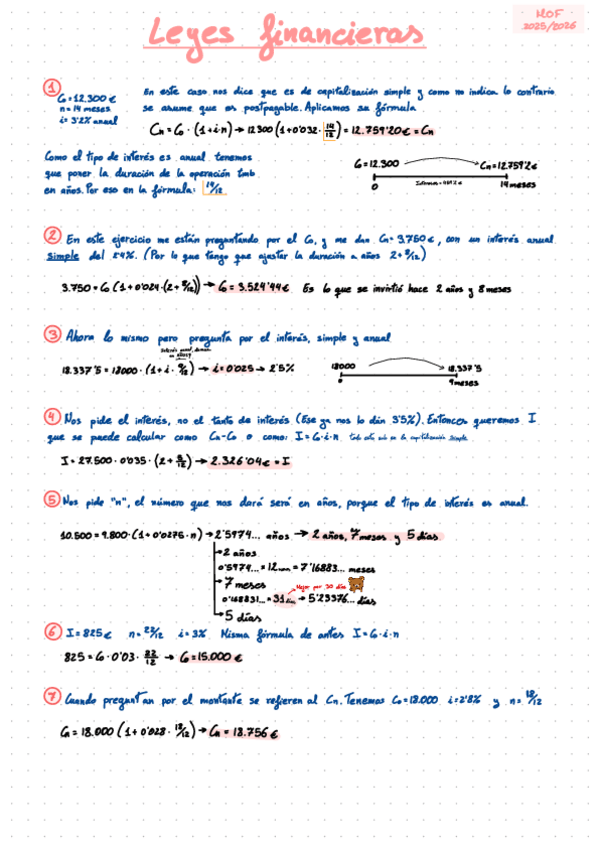 MOF
2025/2026
Leyes financieras
1
C₀=12.300€
n=14 meses
i=3'2% anual
En este caso nos dice que es de capitalización simple y como no indica lo contrario
se asume que es postpagable. Aplicamos su fórmula
Cn=C₀·(1+i·n)→12300(1+0'032·14/12)=12.759'20€=Cn
Como el tipo de interés es anual tenemos
que poner la duración de la operación tmb
en años. Por eso en la fórmula: 14/12
C₀=12.300
Cn=12.759'2€
0
14 meses
2 En este ejercicio me están preguntando por el C₀, y me dan Cn=3.750€, con un interés anual
simple del 2'4%. (Por lo que tengo que ajustar la duración a años 2+8/12)
3.750=C₀(1+0'024·(2+8/12))→C₀=3.524'44€ Es lo que se invirtió hace 2 años y 8 meses
3 Ahora lo mismo pero pregunta por el interés, simple y anual
18.337'5=18000·(1+i·9/12)→i=0'025→2'5%
18000
18.337'5
0
9 meses
4 Nos pide el interés, no el tanto de interés (Ese ya nos lo dan 3'5%). Entonces queremos I
que se puede calcular como Cn-C₀ o como: I=C₀·i·n
I=27.500·0'035·(2+5/12)→2.326'04€=I
5 Nos pide "n", el número que nos dará será en años, porque el tipo de interés es anual.
10.500=9.800·(1+0'0275·n)→2'5974... años→2 años, 7 meses y 5 días
→2 años
0'5974...×12 =7'16883... meses
→7 meses
Mejor por 30 días
0'168831...×31 →5'23376... días
→5 días
6 I=825€ n=22/12 i=3% Misma fórmula de antes I=C₀·i·n
825=C₀·0'03·22/12→C₀=15.000€
7 Cuando preguntan por el montante se refieren al Cn. Tenemos C₀=18.000 i=2'8% y n=18/12
Cn=18.000(1+0'028·18/12)→Cn=18.756€